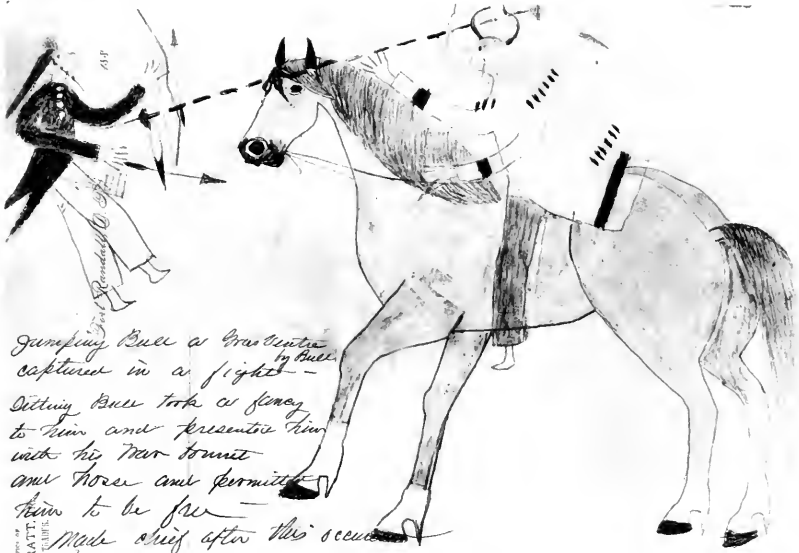 Fort Randall D. T.
Jumping Bull a Gros Ventre
captured in a fight – by Bull
Sitting Bull took a fancy
to him and presented him
with his War bonnet
and horse and permitted
him to be free –
Made chief after this
RATT,
TRADER.